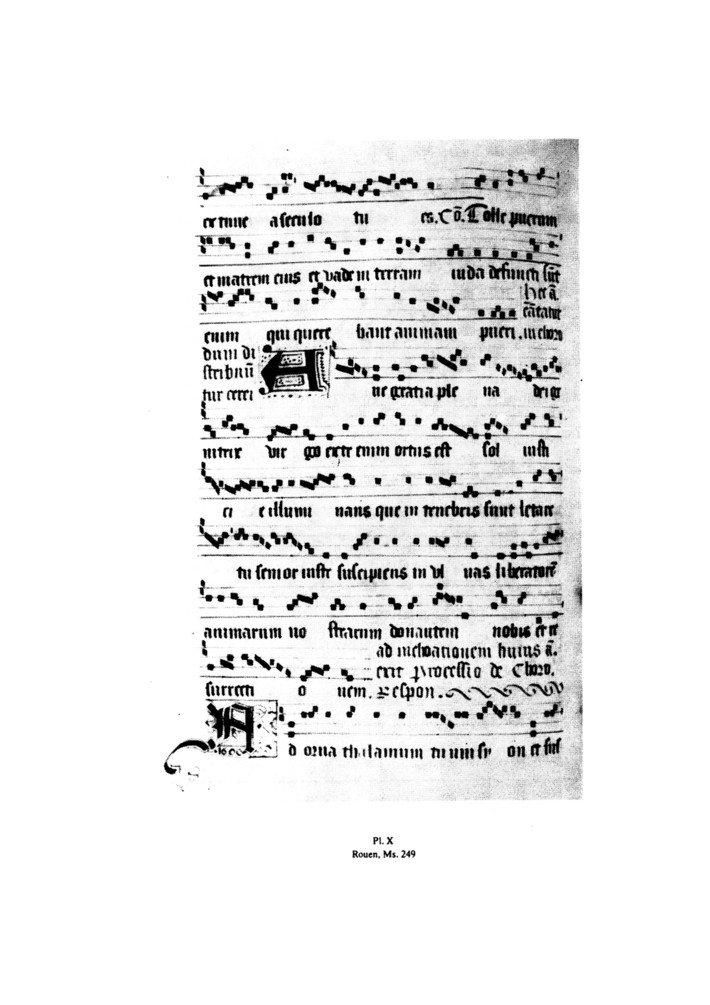 ex tunc a seculo tu es. Cō. Tolle puerum
et matrem eius et vade in terram iuda defuncti sūt
hec ā.
cātatur
enim qui quere bant animam pueri. in choro
dum di
stribuū
tur cerei
A ue gratia ple na dei ge
nitrix vir go ex te enim ortus est sol iusti
ci e illumi nans que in tenebris sunt letare
tu senior iuste suscipiens in vl nas liberatorē
animarum no strarum donantem nobis et re
ad inchoationem huius ā.
exit processio de Choro.
surrecti o nem. Respon.
A d orna thalamum tuum sy on et sus
Pl. X
Rouen, Ms. 249